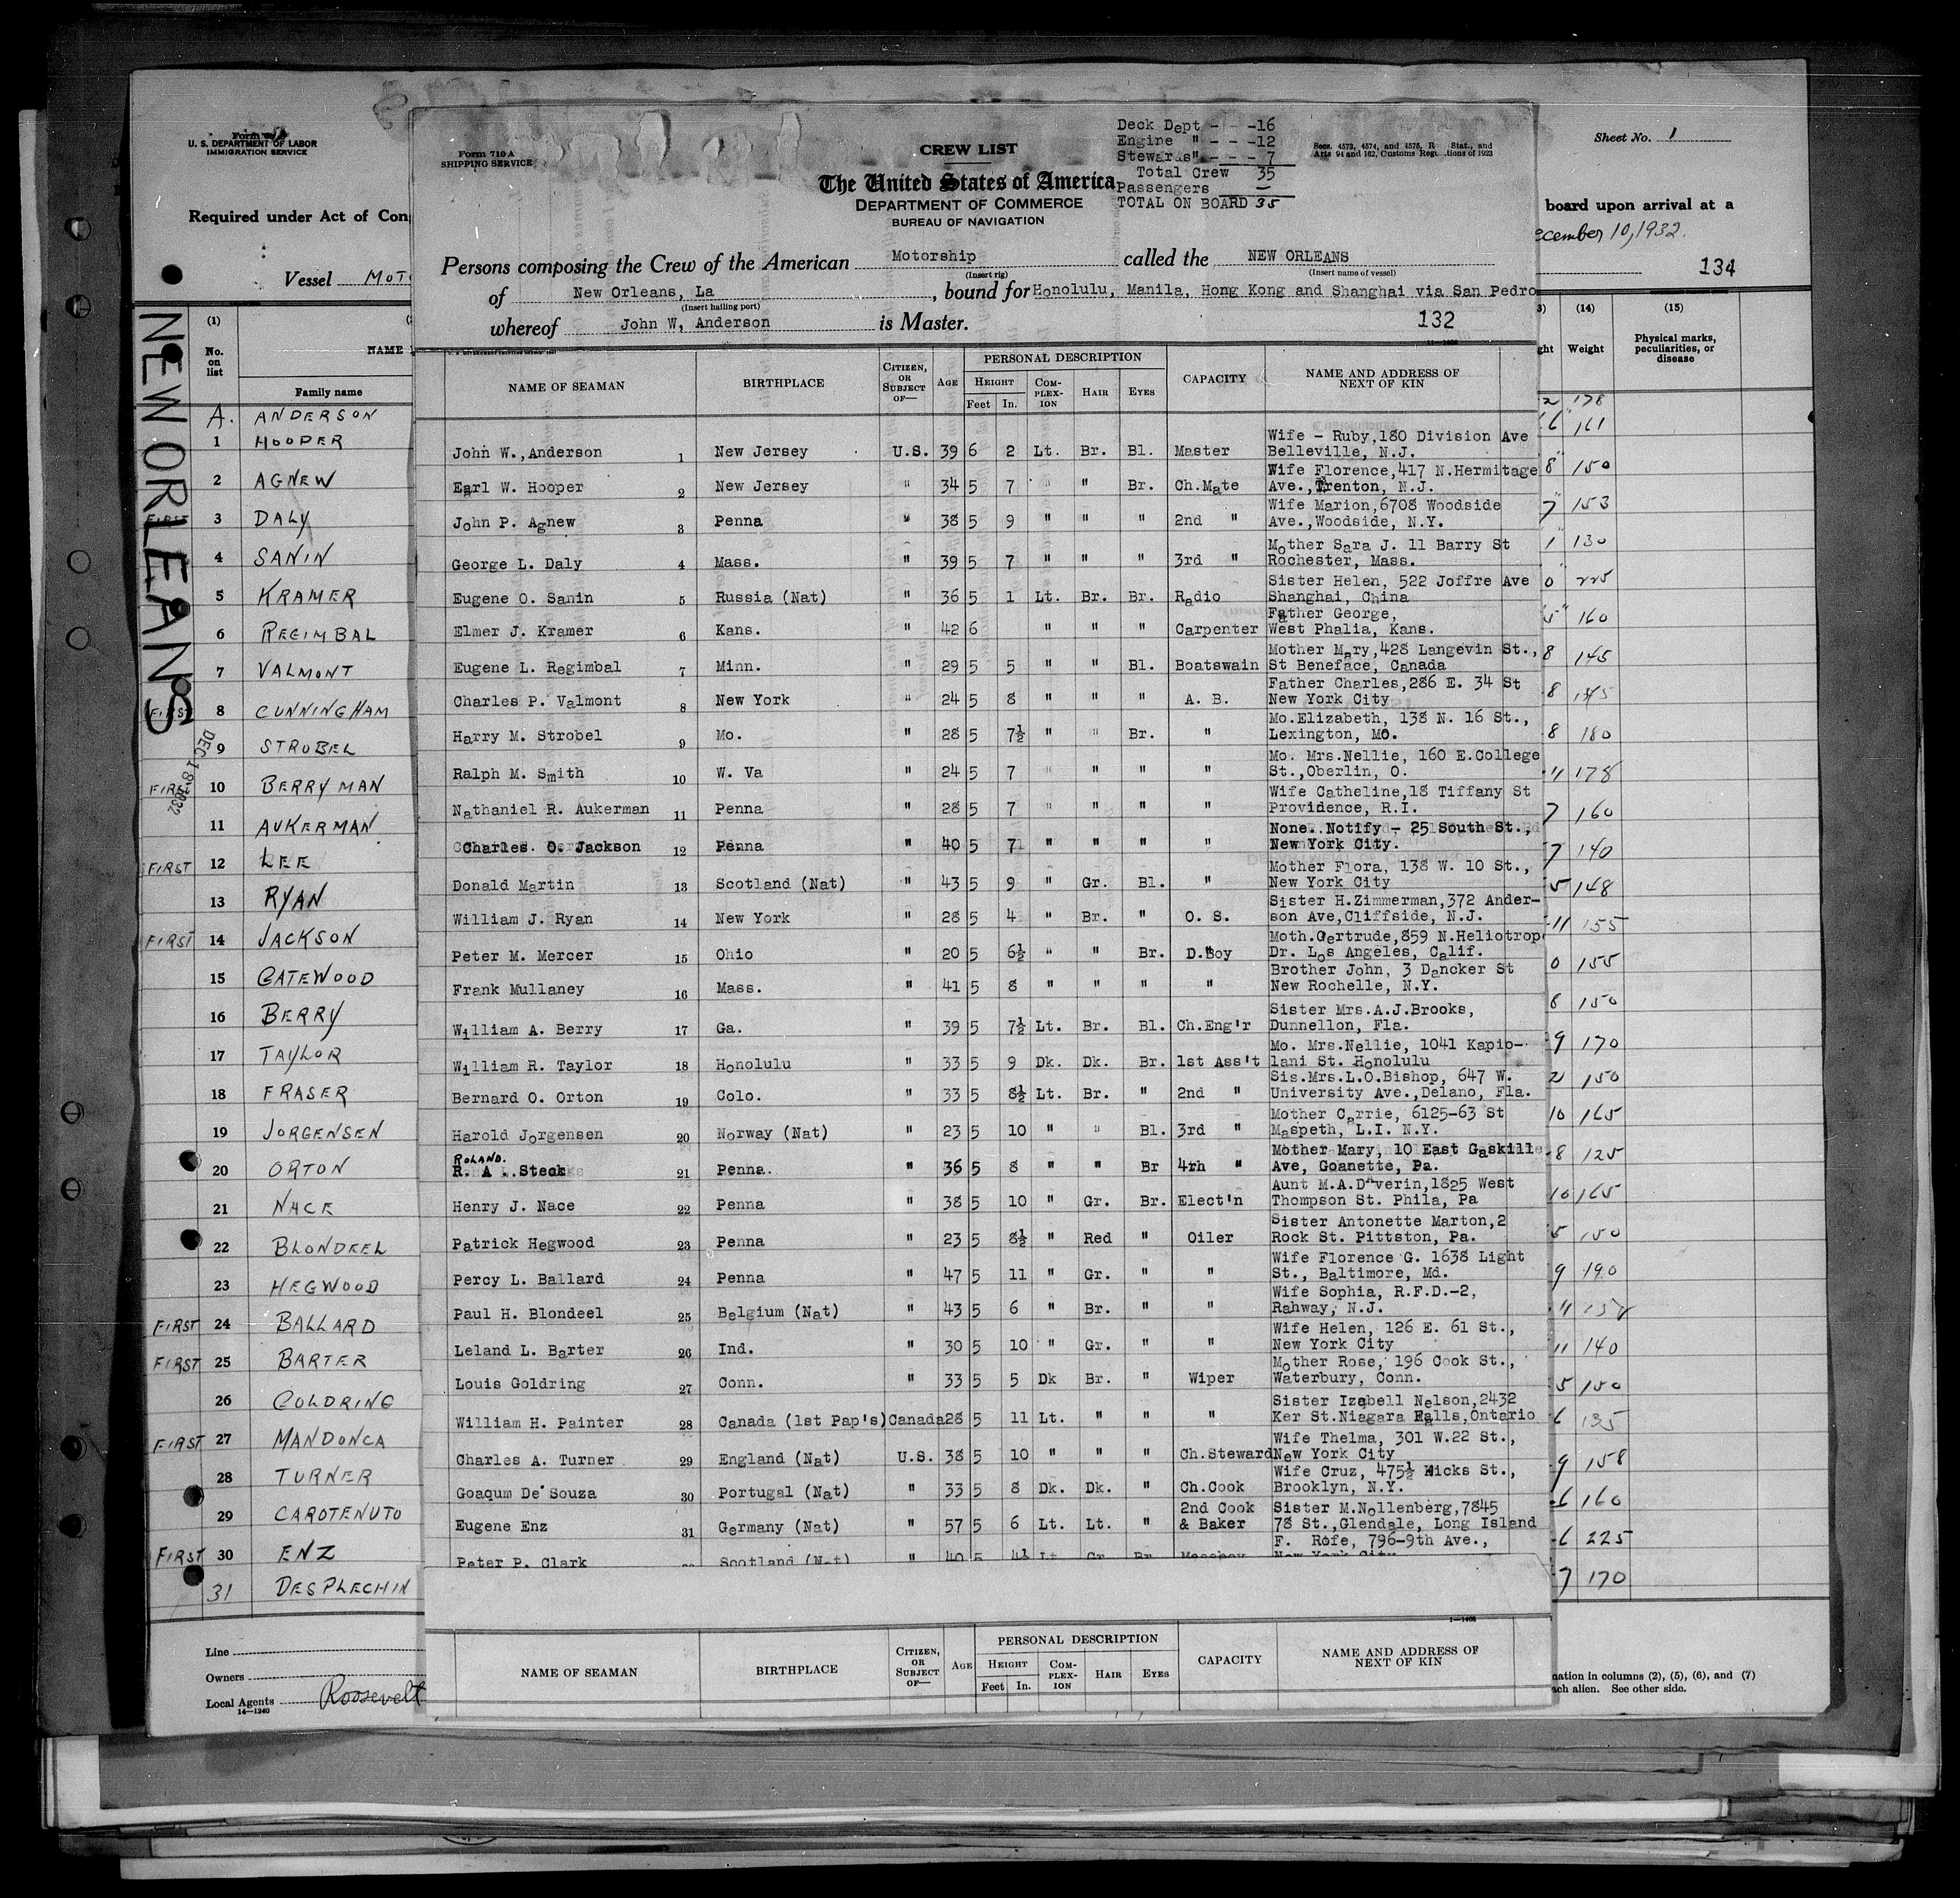 U. S. DEPARTMENT OF LABOR
IMMIGRATION SERVICE
Required under Act of Con
Vessel MOTO
NEW ORLEANS
(1)
No. on list
NAME
Family name
A. ANDERSON
1 HOOPER
2 AGNEW
FIRST 3 DALY
4 SANIN
5 KRAMER
6 REGIMBAL
7 VALMONT
FIRST 8 CUNNINGHAM
9 STROBEL
DEC 18 1932
FIRST 10 BERRYMAN
11 AUKERMAN
FIRST 12 LEE
13 RYAN
FIRST 14 JACKSON
15 GATEWOOD
16 BERRY
17 TAYLOR
18 FRASER
19 JORGENSEN
20 ORTON
21 NACE
22 BLONDEEL
23 HEGWOOD
FIRST 24 BALLARD
FIRST 25 BARTER
26 GOLDRING
FIRST 27 MANDONCA
28 TURNER
29 CAROTENUTO
FIRST 30 ENZ
31 DESPLECHIN
Line
Owners
Local Agents Roosevelt
14—1240
Form 710 A
SHIPPING SERVICE
CREW LIST
The United States of America
DEPARTMENT OF COMMERCE
BUREAU OF NAVIGATION
Deck Dept - - -16
Engine " - - -12
Stewards" - - - 7
Total Crew 35
Passengers —
TOTAL ON BOARD 35
Secs. 4573, 4574, and 4575, R Stat., and
Arts 94 and 162, Customs Regu tions of 1923
Persons composing the Crew of the American Motorship called the NEW ORLEANS
(Insert rig) (Insert name of vessel)
of New Orleans, La , bound for Honolulu, Manila, Hong Kong and Shanghai via San Pedro
(Insert hailing port)
whereof John W, Anderson is Master. 132
NAME OF SEAMAN BIRTHPLACE CITIZEN, OR SUBJECT OF— AGE PERSONAL DESCRIPTION CAPACITY NAME AND ADDRESS OF NEXT OF KIN
HEIGHT COMPLEXION HAIR EYES
Feet In.
Wife - Ruby,180 Division Ave
John W.,Anderson 1 New Jersey U.S. 39 6 2 Lt. Br. Bl. Master Belleville, N.J.
Wife Florence,417 N.Hermitage
Earl W. Hooper 2 New Jersey " 34 5 7 " " Br. Ch.Mate Ave.,Trenton, N.J.
Wife Marion,6708 Woodside
John P. Agnew 3 Penna " 38 5 9 " " " 2nd " Ave.,Woodside, N.Y.
Mother Sara J. 11 Barry St
George L. Daly 4 Mass. " 39 5 7 " " " 3rd " Rochester, Mass.
Sister Helen, 522 Joffre Ave
Eugene O. Sanin 5 Russia (Nat) " 36 5 1 Lt. Br. Br. Radio Shanghai, China
Father George,
Elmer J. Kramer 6 Kans. " 42 6 " " " Carpenter West Phalia, Kans.
Mother Mary,428 Langevin St.,
Eugene L. Regimbal 7 Minn. " 29 5 5 " " Bl. Boatswain St Beneface, Canada
Father Charles,286 E. 34 St
Charles P. Valmont 8 New York " 24 5 8 " " " A. B. New York City
Mo.Elizabeth, 138 N. 16 St.,
Harry M. Strobel 9 Mo. " 28 5 7½ " " Br. " Lexington, MO.
Mo. Mrs.Nellie, 160 E.College
Ralph M. Smith 10 W. Va " 24 5 7 " " " " St.,Oberlin, O.
Wife Catheline,18 Tiffany St
Nathaniel R. Aukerman 11 Penna " 28 5 7 " " " " Providence, R.I.
None. Notify - 25 South St.,
Charles. O. Jackson 12 Penna " 40 5 7 " " " " New York City.
Mother Flora, 138 W. 10 St.,
Donald Martin 13 Scotland (Nat) " 43 5 9 " Gr. Bl. " New York City
Sister H.Zimmerman,372 Ander-
William J. Ryan 14 New York " 28 5 4 " Br. " O. S. son Ave,Cliffside, N.J.
Moth.Gertrude,859 N.Heliotrop
Peter M. Mercer 15 Ohio " 20 5 6½ " " Br. D.Boy Dr. Los Angeles, Calif.
Brother John, 3 Dancker St
Frank Mullaney 16 Mass. " 41 5 8 " " " " New Rochelle, N.Y.
Sister Mrs.A.J.Brooks,
William A. Berry 17 Ga. " 39 5 7½ Lt. Br. Bl. Ch.Eng'r Dunnellon, Fla.
Mo. Mrs.Nellie, 1041 Kapio-
William R. Taylor 18 Honolulu " 33 5 9 Dk. Dk. Br. 1st Ass't lani St. Honolulu
Sis.Mrs.L.O.Bishop, 647 W.
Bernard O. Orton 19 Colo. " 33 5 8½ Lt. Br. " 2nd " University Ave.,Delano, Fla.
Mother Carrie, 6125-63 St
Harold Jorgensen 20 Norway (Nat) " 23 5 10 " " Bl. 3rd " Maspeth, L.I. N.Y.
ROLAND. Mother Mary, 10 East Gaskille
R. A .Steck 21 Penna. " 36 5 8 " " Br 4th " Ave, Goanette, Pa.
Aunt M.A.D verin,1825 West
Henry J. Nace 22 Penna " 38 5 10 " Gr. Br. Elect'n Thompson St. Phila, Pa
Sister Antonette Marton,2
Patrick Hegwood 23 Penna " 23 5 8½ " Red " Oiler Rock St. Pittston, Pa.
Wife Florence G. 1638 Light
Percy L. Ballard 24 Penna " 47 5 11 " Gr. " " St., Baltimore, Md.
Wife Sophia, R.F.D.-2,
Paul H. Blondeel 25 Belgium (Nat) " 43 5 6 " Br. " " Rahway, N.J.
Wife Helen, 126 E. 61 St.,
Leland L. Barter 26 Ind. " 30 5 10 " Gr. " " New York City
Mother Rose, 196 Cook St.,
Louis Goldring 27 Conn. " 33 5 5 Dk Br. " Wiper Waterbury, Conn.
Sister Izabell Nelson,2432
William H. Painter 28 Canada (1st Pap's) Canada 28 5 11 Lt. " " " Ker St.Niagara Falls,Ontario
Wife Thelma, 301 W.22 St.,
Charles A. Turner 29 England (Nat) U.S. 38 5 10 " " " Ch.Steward New York City
Wife Cruz, 475½ Hicks St.,
Goaqum De Souza 30 Portugal (Nat) " 33 5 8 Dk. Dk. " Ch.Cook Brooklyn, N.Y.
2nd Cook Sister M.Nollenberg,7845
Eugene Enz 31 Germany (Nat) " 57 5 6 Lt. Lt. " & Baker 78 St.,Glendale, Long Island
F. Rofe, 796-9th Ave.,
Peter P. Clark Scotland (Nat) " 40 5 4½ Lt Gr Br Messboy New York City
NAME OF SEAMAN BIRTHPLACE CITIZEN, OR SUBJECT OF— AGE PERSONAL DESCRIPTION CAPACITY NAME AND ADDRESS OF NEXT OF KIN
HEIGHT COMPLEXION HAIR EYES
Feet In.
Sheet No. 1
board upon arrival at a
ecember 10, 1932.
134
(14) (15)
ght Weight Physical marks, peculiarities, or disease
2 178
6 161
8 150
7 153
1 130
0 225
5 160
8 145
8
8 180
11 178
7 160
7 140
5 148
11 155
0 155
8 150
9 170
2 150
10 165
8 125
10 165
5 150
9 190
11
11 140
5 150
6 135
9 158
6 160
6 225
7 170
nation in columns (2), (5), (6), and (7)
ach alien. See other side.